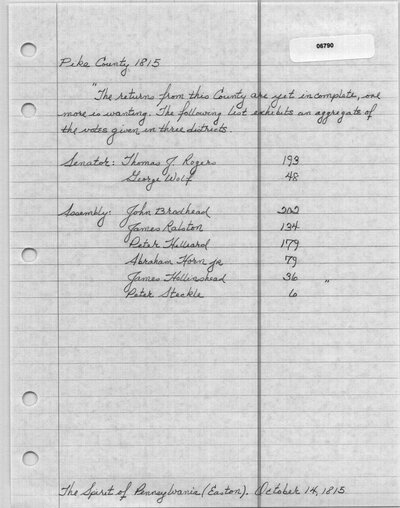 06790
Pike County 1815
"The returns from this County are yet incomplete, one
more is wanting. The following list exhibits an aggregate of
the votes given in three districts.
Senator: Thomas J. Rogers 193
George Wolf 48
Assembly: John Brodhead 202
James Ralston 134
Peter Hilliard 179
Abraham Horn jr 79
James Hollinshead 36 "
Peter Steckle 6
The Spirit of Pennsylvania (Easton). October 14, 1815.